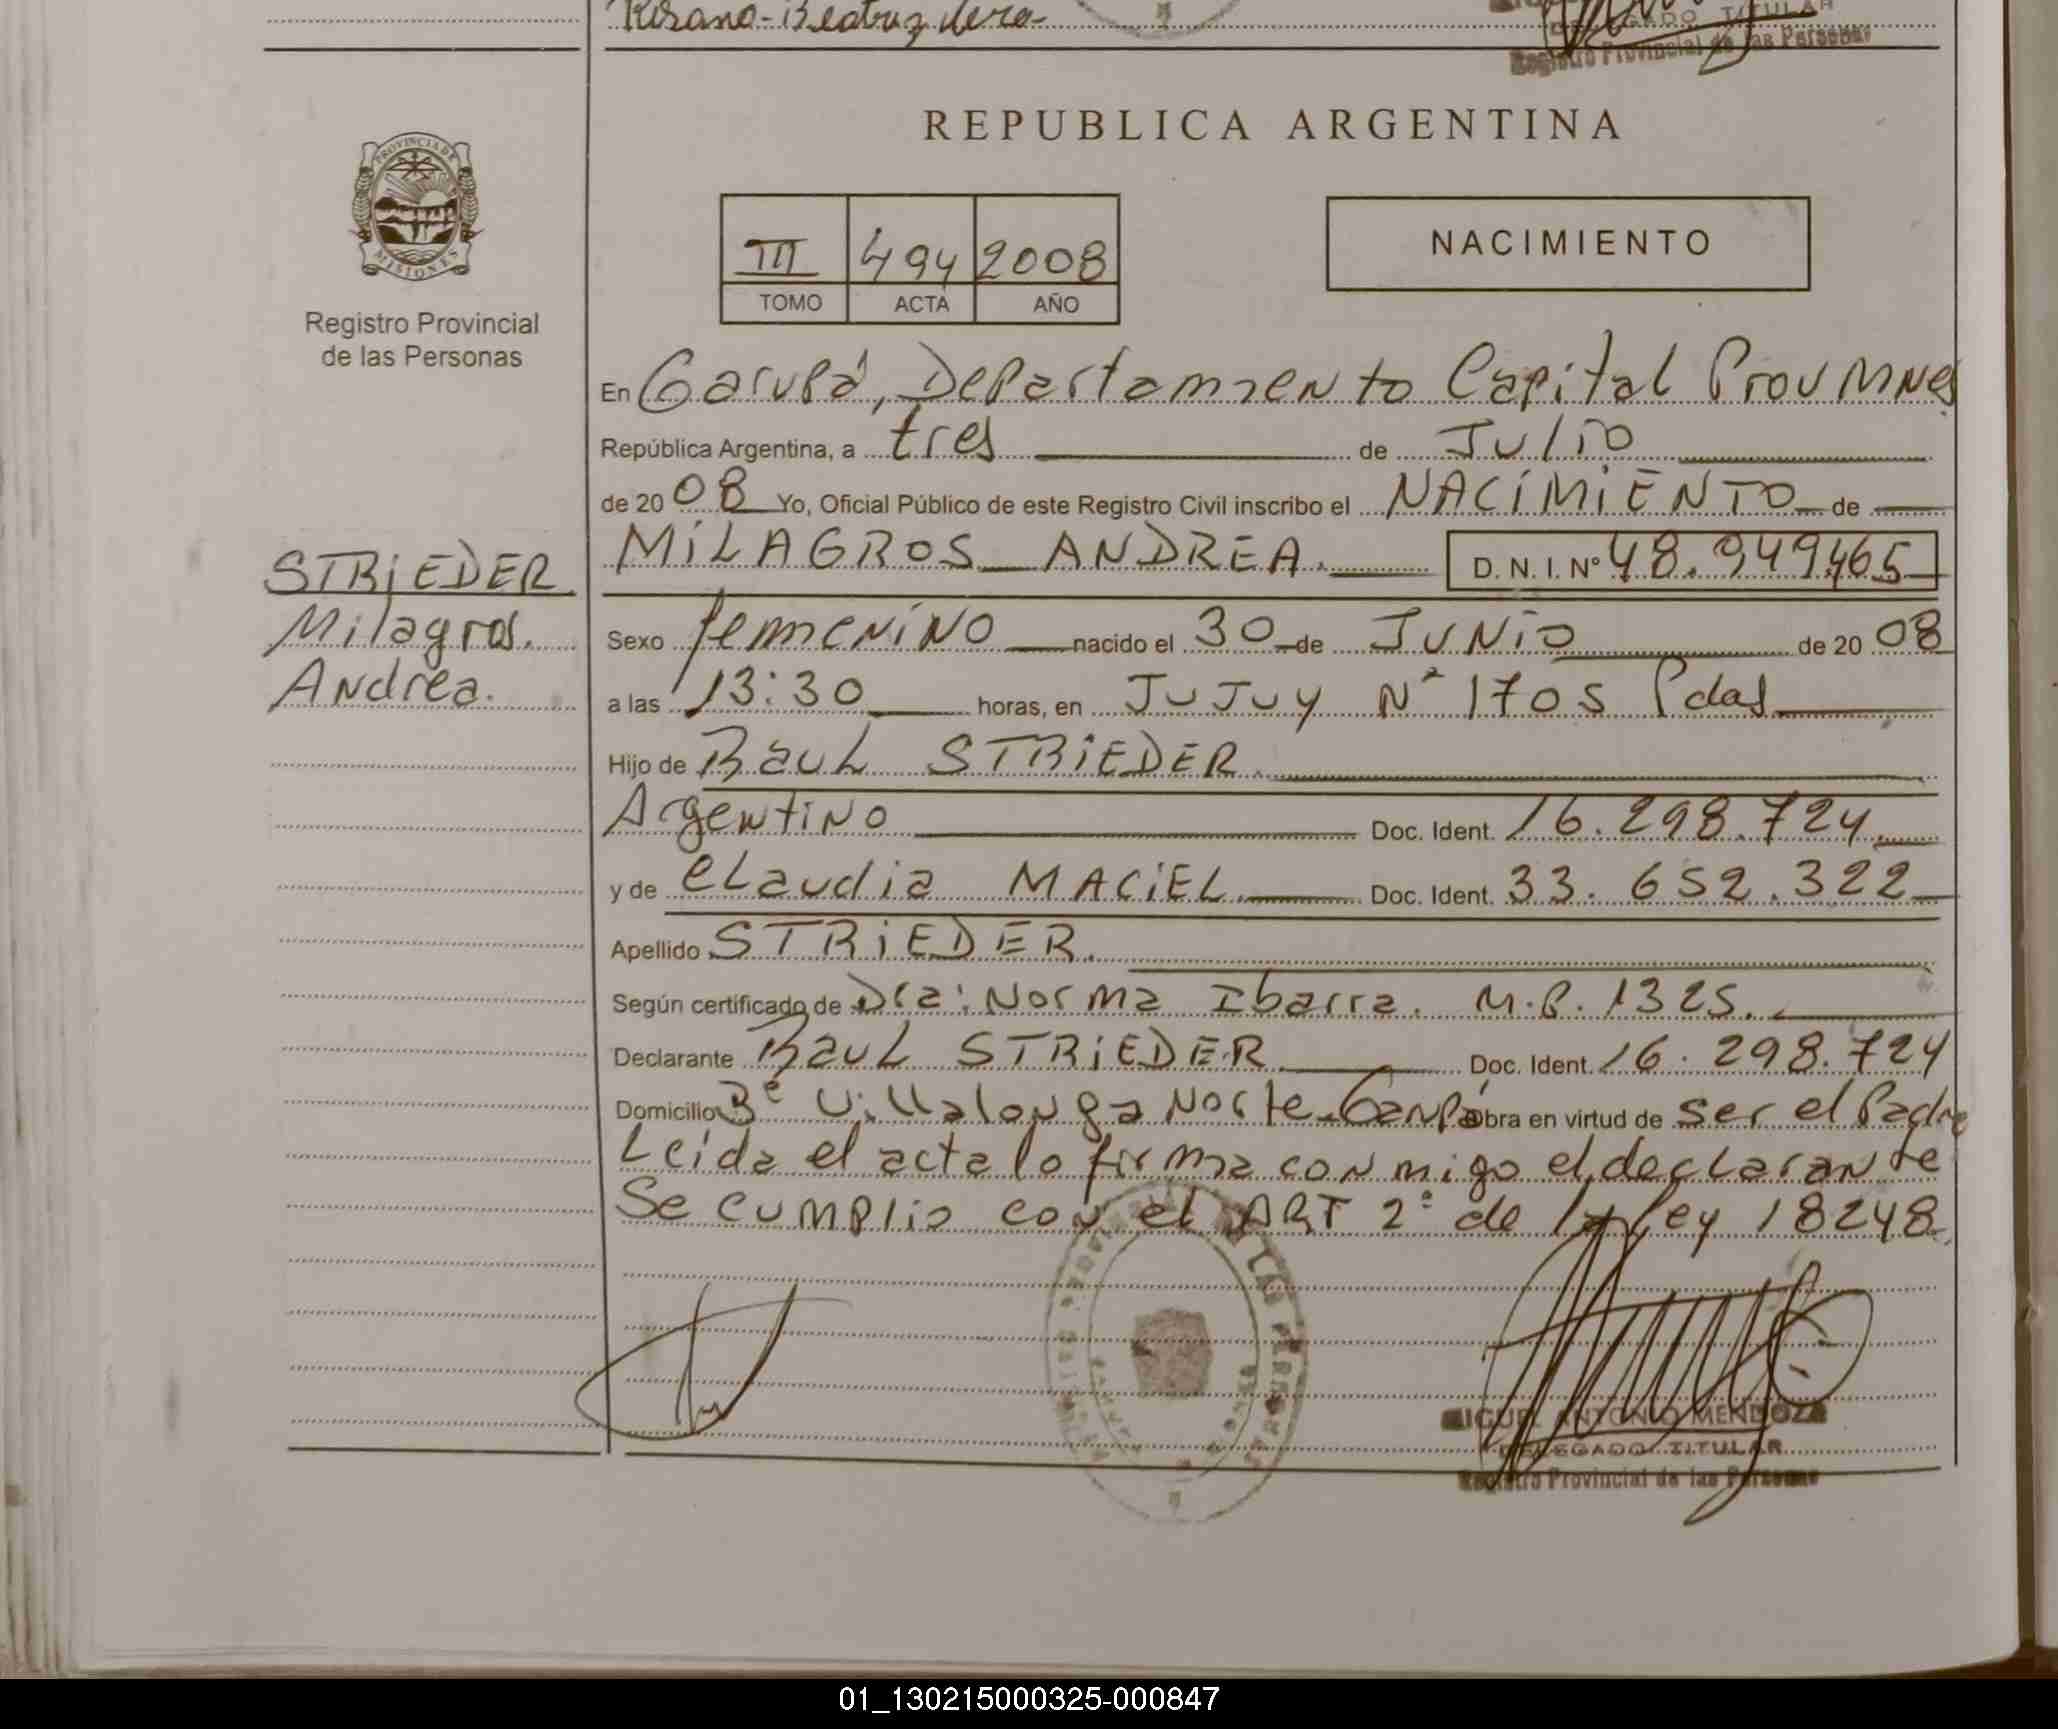 DELEGADO TITULAR
Registro Provincial de las Personas
REPUBLICA ARGENTINA
PROVINCIA DE
MISIONES
Registro Provincial
de las Personas
III 494 2008
TOMO ACTA AÑO
NACIMIENTO
En Garupá, Departamiento Capital Prov Mnes
República Argentina, a tres de Julio
de 2008 Yo, Oficial Público de este Registro Civil inscribo el NACIMIENTO de
MILAGROS ANDREA. D. N. I. Nº 48.949.465
STRIEDER
Milagros.
Andrea.
Sexo femenino nacido el 30 de JUNIO de 2008
a las 13:30 horas, en JuJuy Nº 1705 Pdas
Hijo de Raul STRIEDER.
Argentino Doc. Ident. 16.298.724
y de Claudia MACIEL Doc. Ident. 33.652.322
Apellido STRIEDER.
Según certificado de Dra: Norma Ibarra. M.P. 1325.
Declarante Raul STRIEDER Doc. Ident. 16.298.724
Domicilio Bº Villalonga Norte-Garupá obra en virtud de ser el Padre
Leida el acta lo firma conmigo el declarante
Se cumplio con el ART 2º de la ley 18248
MIGUEL ANTONIO MENDOZA
DELEGADO TITULAR
Registro Provincial de las Personas
01_130215000325-000847